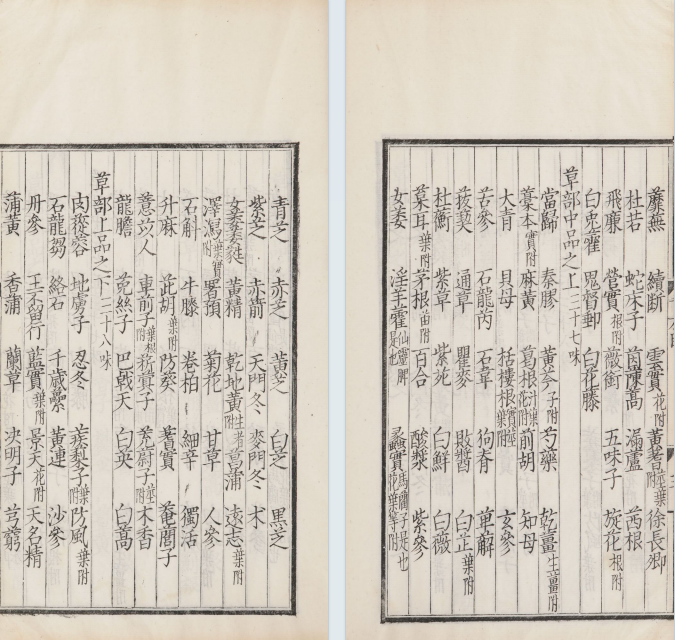 青芝 赤芝 黃芝 白芝 黑芝
紫芝 赤箭 天門冬 麥門冬 朮
女萎萎蕤 黃精 乾地黃生者附 菖蒲 遠志葉附
澤瀉葉實附 署預 菊花 甘草 人參
石斛 牛膝 卷柏 細辛 獨活
升麻 茈胡葉附 防葵 蓍實 菴䕡子
薏苡人 車前子葉根附 菥蓂子 茺蔚子莖附 木香
龍膽 菟絲子 巴戟天 白英 白蒿
草部上品之下二十八味
肉蓯蓉 地膚子 忍冬 蒺藜子葉附 防風葉附
石龍芻 絡石 千歲虆 黃連 沙參
丹參 王不留行 藍實葉附 景天花附 天名精
蒲黃 香蒲 蘭草 決明子 芎藭
蘼蕪 續斷 雲實花附 黃耆莖葉附 徐長卿
杜若 蛇床子 茵陳蒿 漏蘆 茜根
飛廉 營實根附 薇銜 五味子 旋花根附
白兎藿 鬼督郵 白花藤
草部中品之上三十七味
當歸 秦膠 黃芩子附 芍藥 乾薑生薑附
藁本實附 麻黃 葛根汁葉花附 前胡 知母
大青 貝母 括樓根實莖附 玄參
苦參 石龍芮 石韋 狗脊 萆解
菝葜 通草 瞿麥 敗醬 白芷葉附
杜蘅 紫草 紫菀 白鮮 白薇
菜耳葉附 茅根苗附 百合 酸漿 紫參
女萎 淫羊藿仙靈脾是也 蠡實馬藺子是也花葉等附